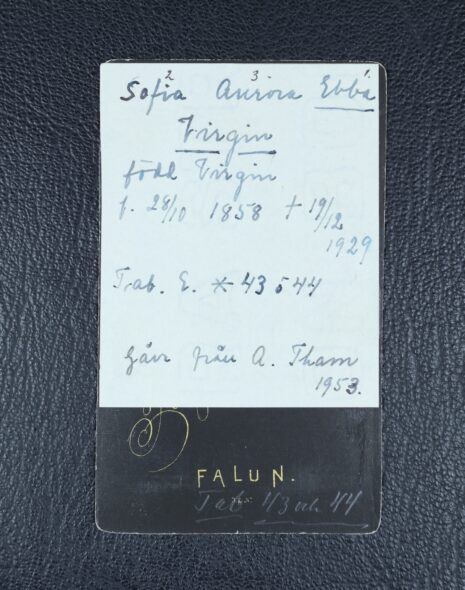 2 3 1
Sofia Aurora Ebba
Virgin
född Virgin
f. 28/10 1858 † 19/12
1929
Tab. E. * 43 o 44
Gåva från A. Tham
1953.
FALUN.
Tab 43 och 44